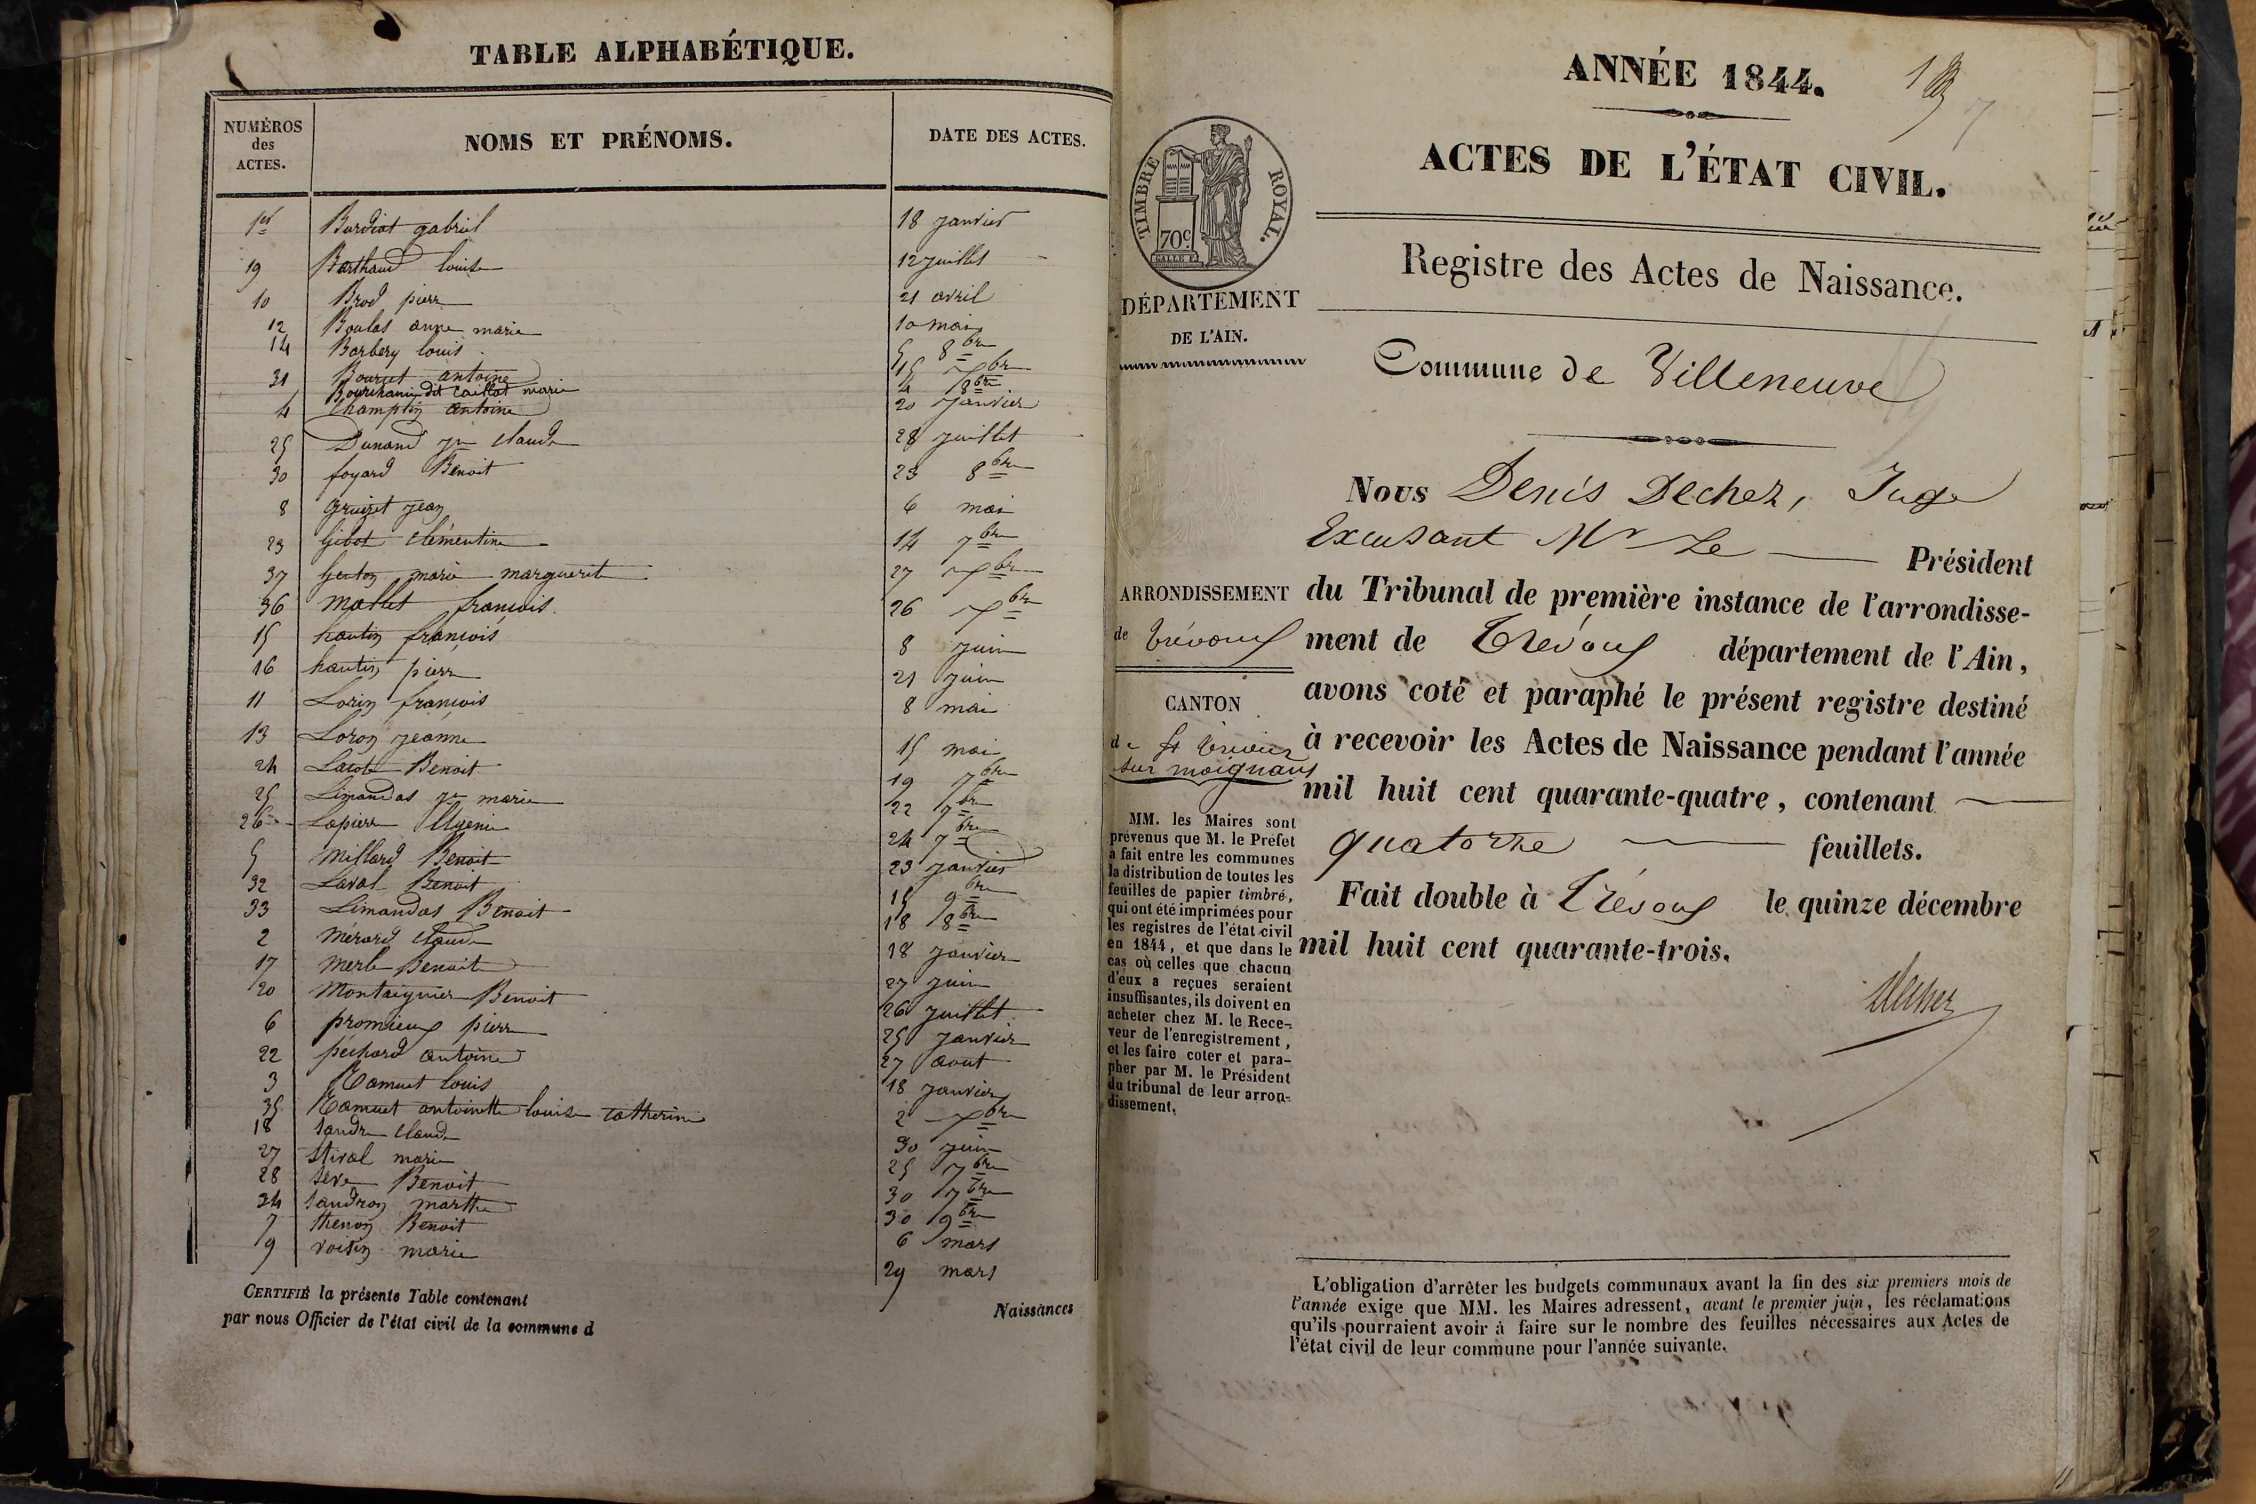 TABLE ALPHABÉTIQUE.
NUMÉROS des ACTES. NOMS ET PRÉNOMS. DATE DES ACTES.
1er Burdiat gabriel 18 janvier
19 Berthaud louise 12 juillet
10 Brod pierre 21 avril
12 Boulas anne marie 10 mai
14 Barbery louis 5 8bre
31 Bourget antoine 15 Xbre
Bourchanin dit Caillat marie 4 8bre
4 Champtin antoine 20 janvier
25 Dunand jn Claude 28 juillet
30 foyard Benoit 23 8bre
8 gruizet jean 6 mai
23 gibot Clémentine 14 7bre
37 guton marie marguerite 27 Xbre
36 mallet françois. 26 Xbre
15 hautin françois 8 juin
16 hautin pierre 21 juin
11 Lorin françois 8 mai
13 Loron jeanne 15 mai
24 Lacote Benoit 19 7bre
25 Limandas jn marie 22 7bre
26 Lapierre Eugenie 24 7bre
5 Millard Benoit 23 janvier
32 Laval Benoit 15 9bre
33 Limandas Benoit 18 8bre
2 Mérard Claude 18 janvier
17 Merle Benoite 27 juin
20 Montaignier Benoit 26 juillet
6 promieux pierre 25 janvier
22 péchard antoine 27 aout
3 Ramuet louis 18 janvier
35 Ramuet antoinette louise catherine 2 Xbre
18 Sandre Claude 30 juin
27 Stival marie 25 7bre
28 Sève Benoit 30 7bre
34 Sandron marthe 30 9bre
7 thenon Benoit 6 mars
9 voisin marie 29 mars
CERTIFIÉ la présente Table contenant Naissances
par nous Officier de l'état civil de la commune d
ANNÉE 1844.
1
7
ACTES DE L'ÉTAT CIVIL.
TIMBRE ROYAL.
70c
Registre des Actes de Naissance.
DÉPARTEMENT
DE L'AIN.
Commune de Villeneuve
Nous Denis Dechez, Juge
Excusant Mr Le Président
du Tribunal de première instance de l'arrondisse-
ment de Trévoux département de l'Ain,
avons coté et paraphé le présent registre destiné
à recevoir les Actes de Naissance pendant l'année
mil huit cent quarante-quatre, contenant
quatorze feuillets.
Fait double à Trévoux le quinze décembre
mil huit cent quarante-trois.
Dechez
ARRONDISSEMENT
de trévoux
CANTON
de St trivier
sur moignans
MM. les Maires sont
prévenus que M. le Préfet
a fait entre les communes
la distribution de toutes les
feuilles de papier timbré,
qui ont été imprimées pour
les registres de l'état civil
en 1844, et que dans le
cas où celles que chacun
d'eux a reçues seraient
insuffisantes, ils doivent en
acheter chez M. le Rece-
veur de l'enregistrement,
et les faire coter et para-
pher par M. le Président
du tribunal de leur arron-
dissement.
L'obligation d'arrêter les budgets communaux avant la fin des six premiers mois de
l'année exige que MM. les Maires adressent, avant le premier juin, les réclamations
qu'ils pourraient avoir à faire sur le nombre des feuilles nécessaires aux Actes de
l'état civil de leur commune pour l'année suivante.